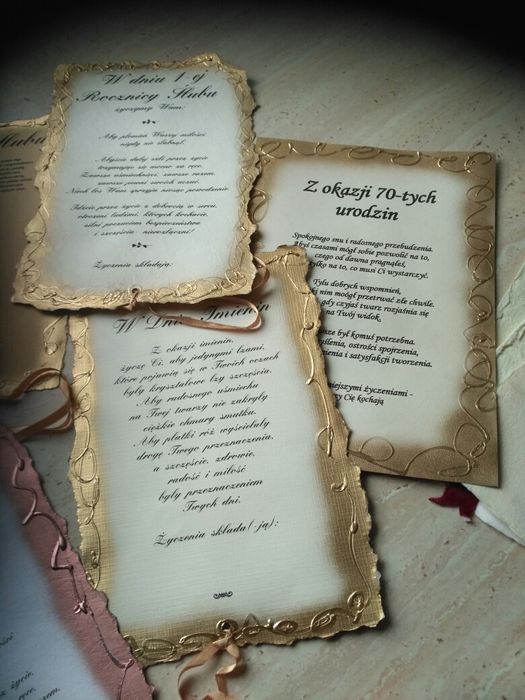 W dniu 1-ej
Rocznicy Ślubu
życzymy Wam:
Aby płomień Waszej miłości
nigdy nie słabnął.
Abyście dalej szli przez życie
trzymając się mocno za ręce.
Zawsze uśmiechnięci, zawsze razem
zawsze pewni swoich uczuć.
Niech los Wam sprzyja niosąc powodzenie.
Idźcie przez życie z dobrocią w sercu,
otoczeni ludźmi, których kochacie,
silni poczuciem bezpieczeństwa
i szczęścia - nierozłączni!
Życzenia składają:
Z okazji 70-tych
urodzin
Spokojnego snu i radosnego przebudzenia.
Byś czasami mógł sobie pozwolić na to,
czego od dawna pragnąłeś,
tylko na to, co musi Ci wystarczyć.
Tylu dobrych wspomnień,
nim mógł przetrwać złe chwile.
gdy czyjaś twarz rozjaśnia się
na Twój widok.
był komuś potrzebna.
ostrości spojrzenia,
i satysfakcji tworzenia.
życzeniami -
Cię kochają
W Dniu Imienin
Z okazji imienin,
życzę Ci, aby jedynymi łzami,
które pojawią się w Twoich oczach
były kryształowe łzy szczęścia.
Aby radosnego uśmiechu
na Twej twarzy nie zakryły
ciężkie chmury smutku.
Aby płatki róż wyściełały
drogę Twego przeznaczenia,
a szczęście, zdrowie,
radość i miłość
były przeznaczeniem
Twych dni.
Życzenia składa(-ją):